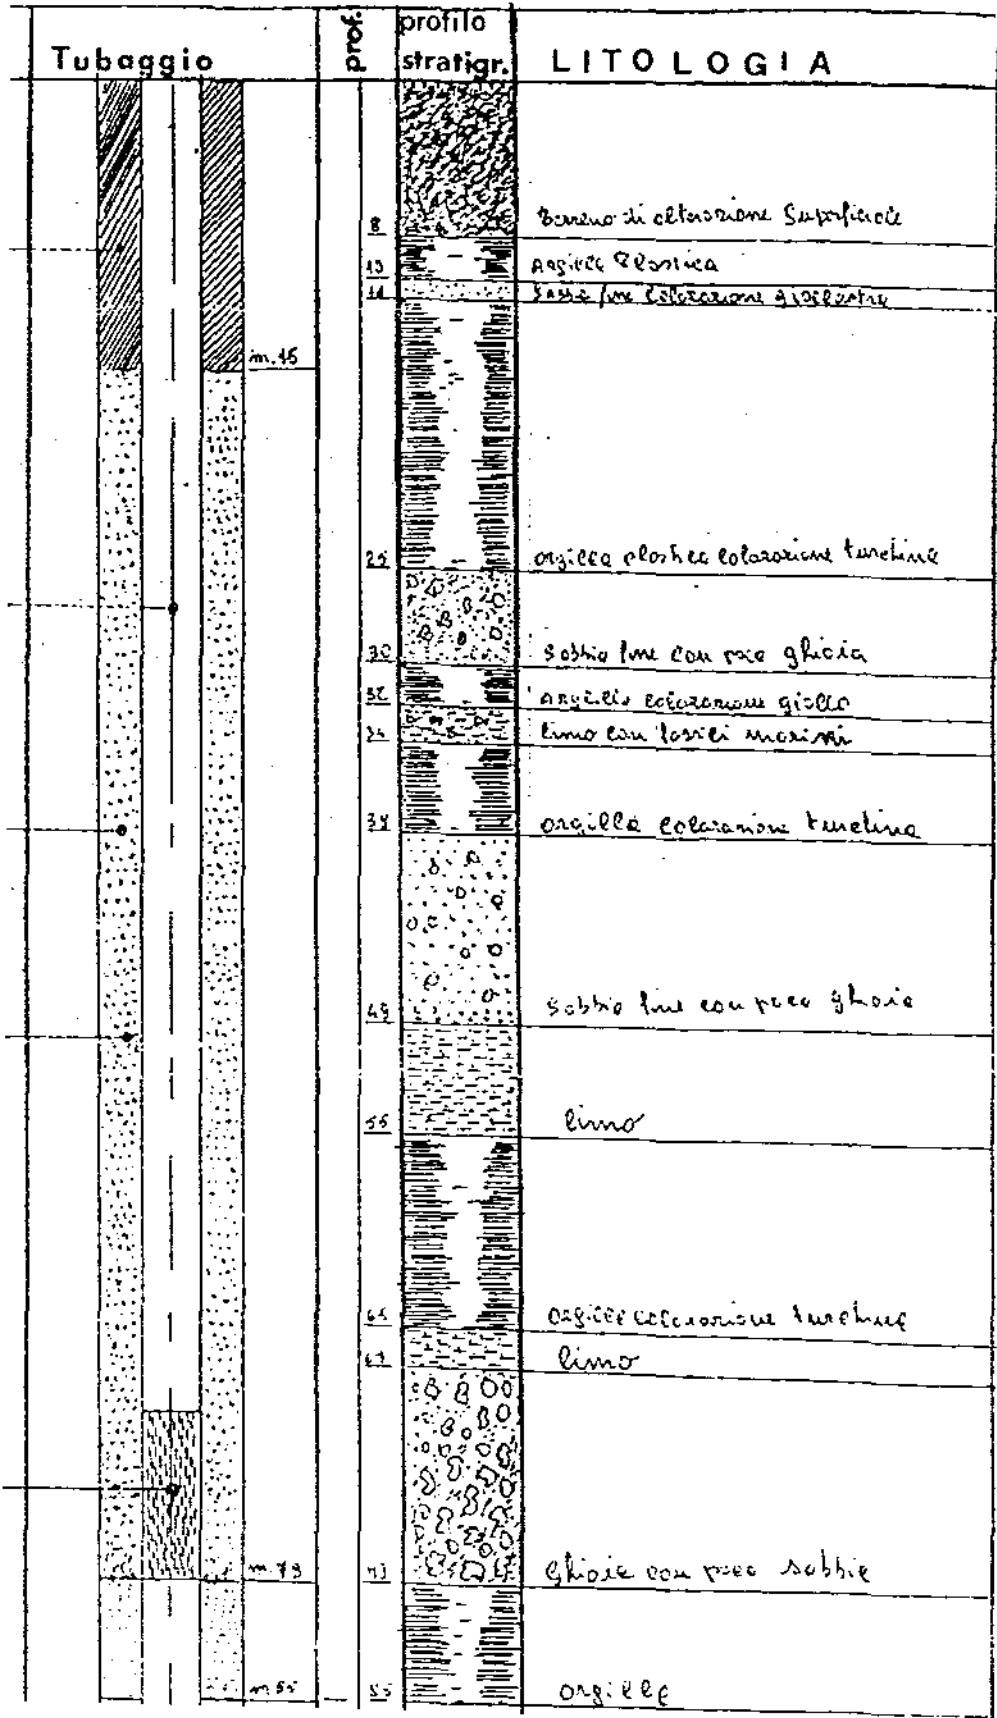 Tubaggio
prof.
profilo
stratigr.
LITOLOGIA
8
terreno di alterazione Superficiale
Argilla Plastica
fine colorazione giallastra
m. 15
argilla plastica colorazione turchina
30
sabbia fine con poca ghiaia
32
argilla colorazione gialla
34
limo con fossili marini
argilla colorazione turchina
49
sabbia fine con poca ghiaia
55
limo
65
argilla colorazione turchina
67
limo
m. 79
ghiaia con poca sabbia
argille